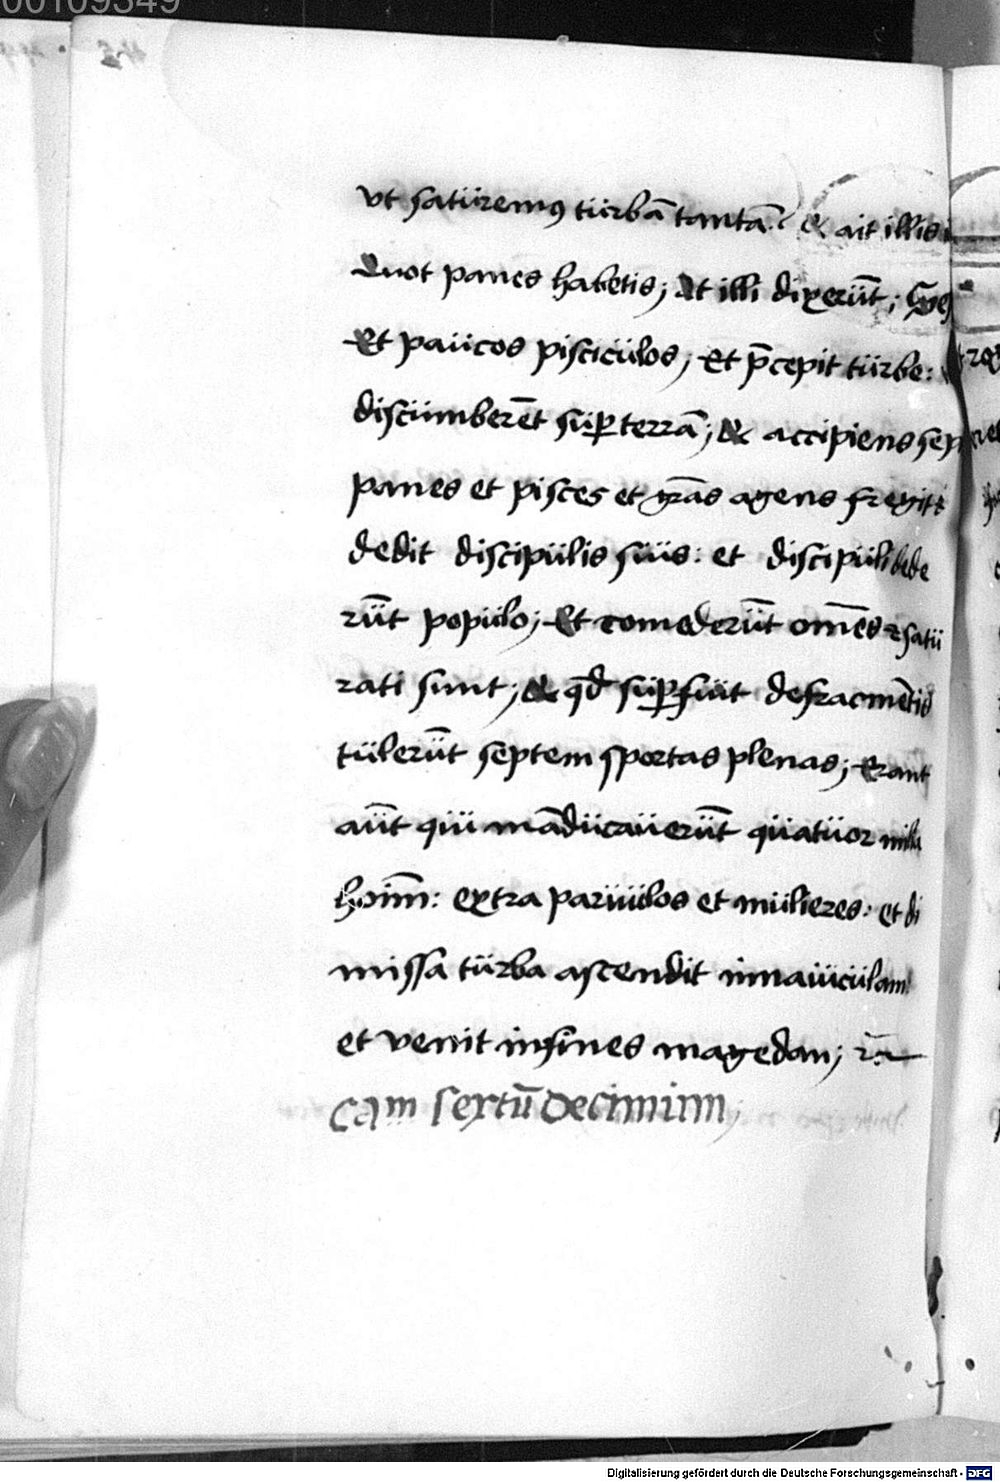 00109349
vt satüremꝰ türbā tantā? & ait illis i
Quot panes habetis; At illi dixerūt; Sep
Et paücos piscicülos; Et p̄cepit türbe:
discümberēt süꝑ terrā; & accipiens sep
panes et pisces et gr̄as agens fregit
dedit discipülis süis: et discipüli dede
rūt popülo; Et comederūt om̄es et satü
rati sunt; & qd̄ süꝑfüit de fracmētis
tülerūt septem sportas plenas; Erant
aūt qüi mādücaüerūt qüatüor milia
hoīm: extra parüülos et mülieres: et di
missa türba ascendit in naüicülam
et venit in fines magedan;
Cam sextū decimüm;
Digitalisierung gefördert durch die Deutsche Forschungsgemeinschaft - DFG